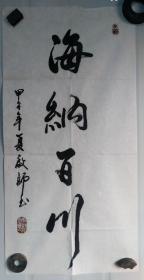 海納百川
甲午年夏敬師书